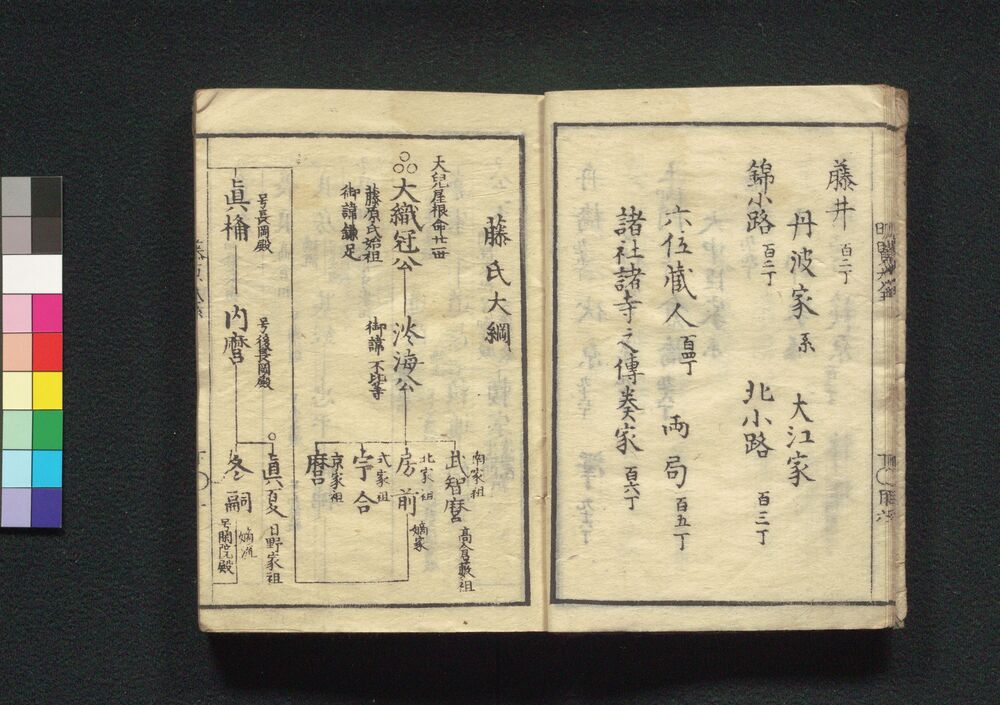 藤井 百二丁
丹波家系 大江家
錦小路 百二丁 北小路 百三丁
六位蔵人 百四丁 両局 百五丁
諸社諸寺之傳奏家 百六丁
藤氏大綱
天兒屋根命廿一世
大織冠公
藤原氏始祖
御諱鎌足
淡海公
御諱不比等
南家祖
武智麿
高倉藪祖
北家祖
房前
嫡家
式家祖
宇合
京家祖
麿
号長岡殿
眞楯
号後長岡殿
内麿
眞夏 日野家祖
冬嗣
嫡流
号閑院殿